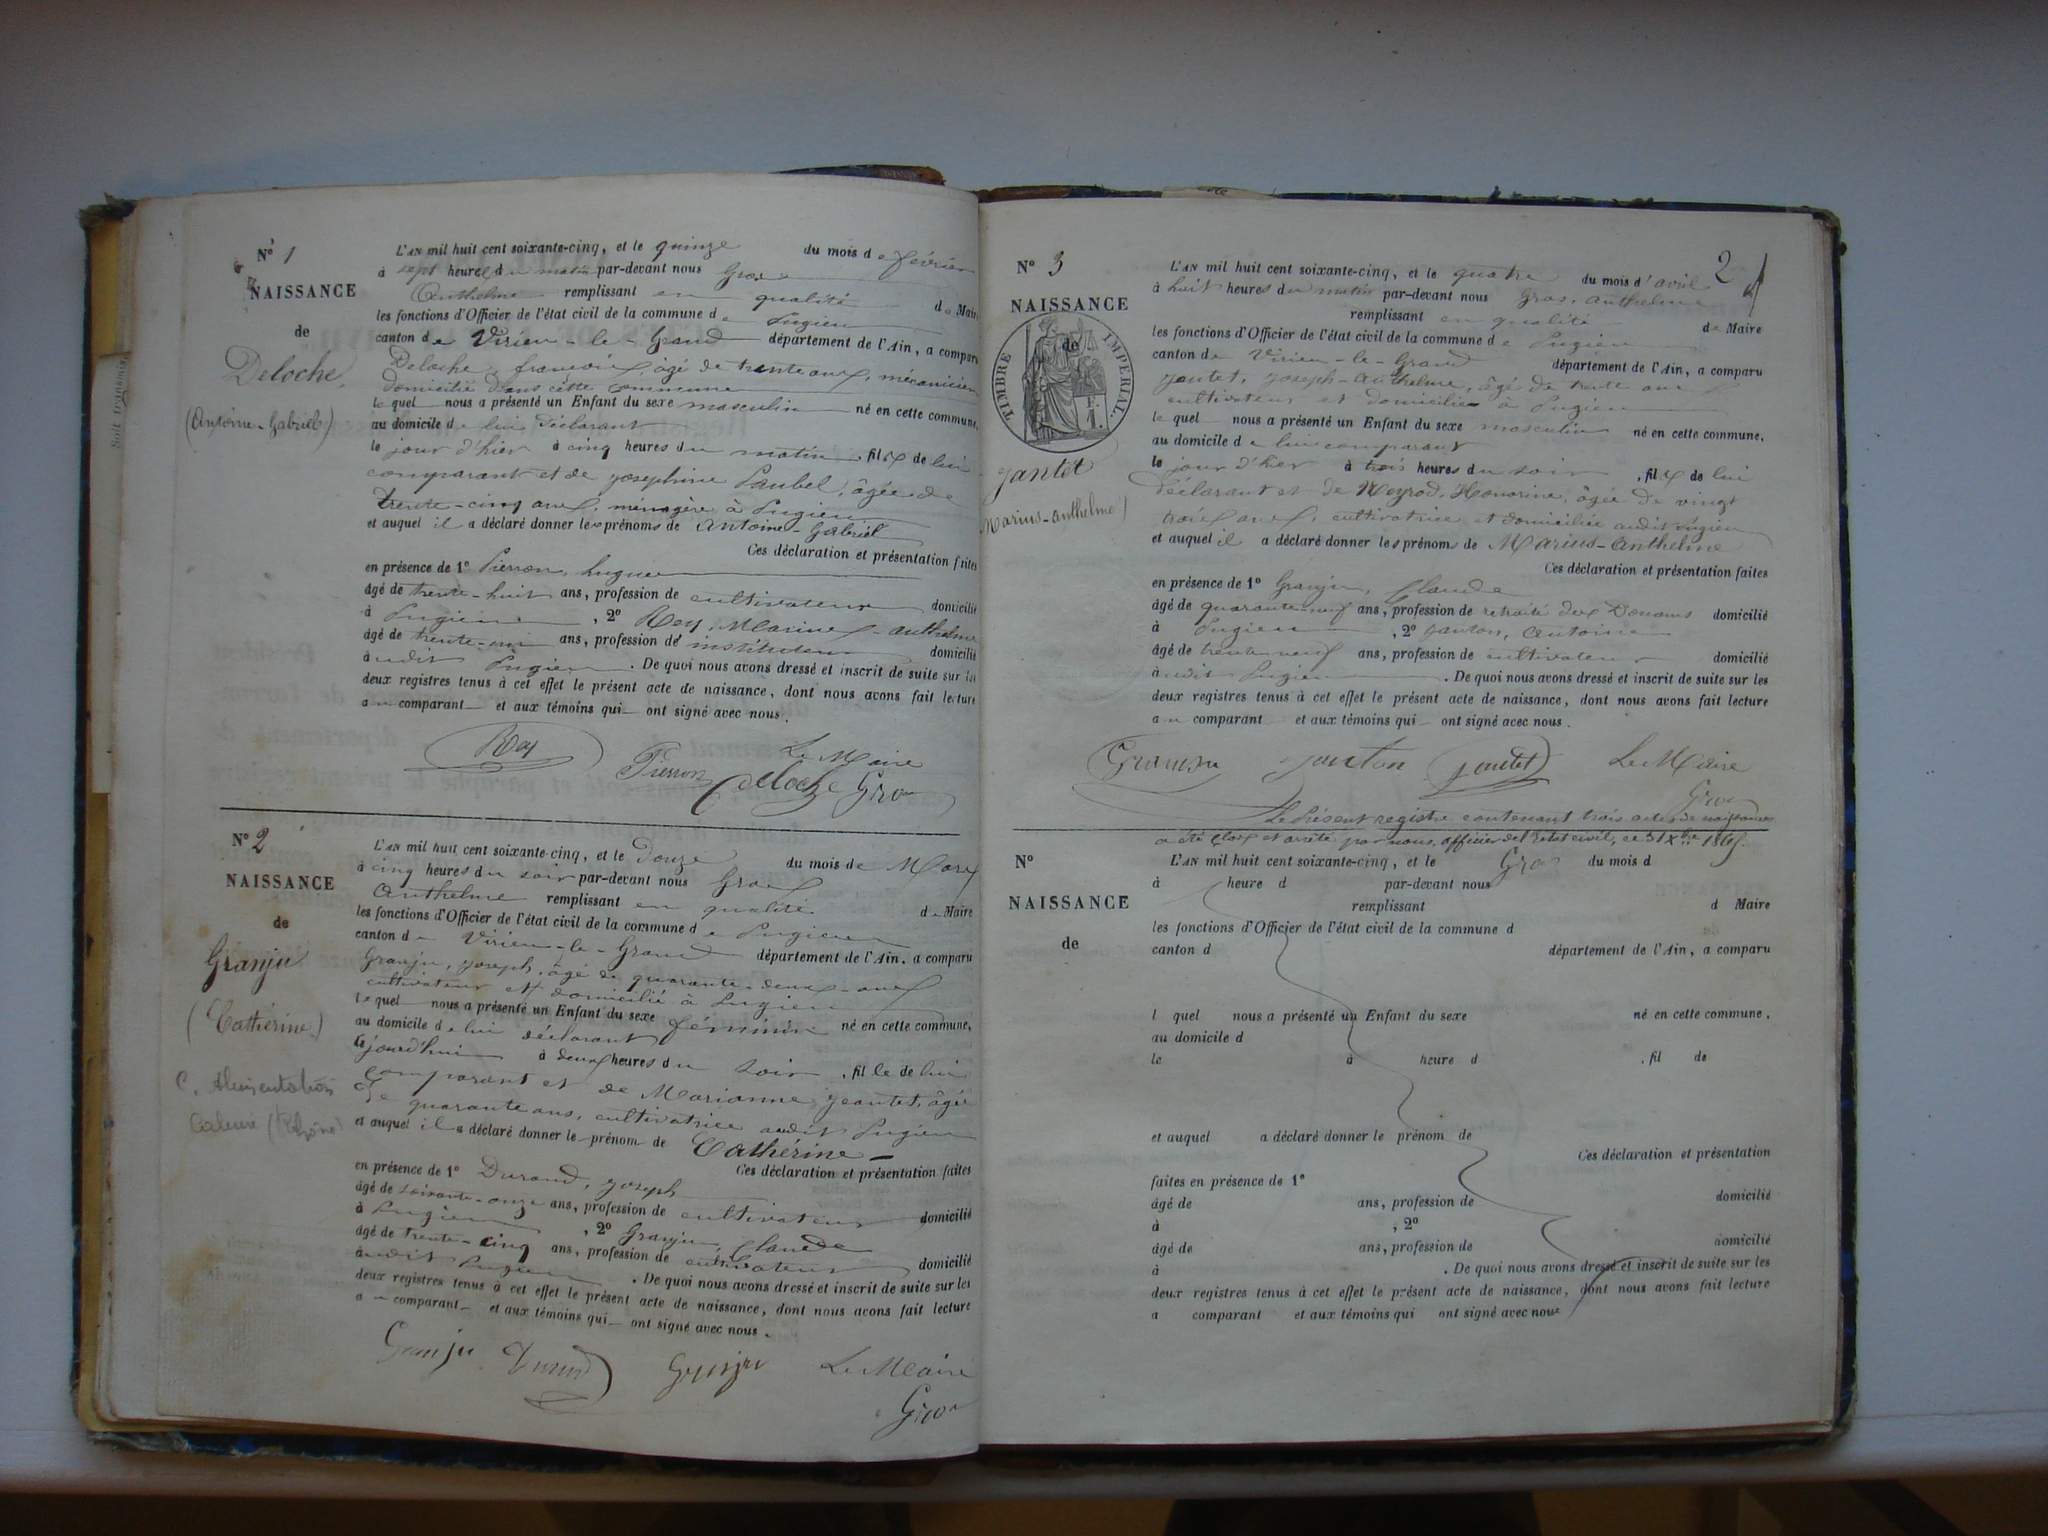 N° 1
NAISSANCE
de
Deloche,
(Antoine-Gabriel)
L'AN mil huit cent soixante-cinq, et le quinze du mois de février
à sept heures du matin par-devant nous Gros
Anthelme remplissant en qualité de Maire
les fonctions d'Officier de l'état civil de la commune de Pugieu
canton de Virieu-le-Grand département de l'Ain, a comparu
Deloche, françois, âgé de trente ans, mécanicien
domicilié dans cette commune
lequel nous a présenté un Enfant du sexe masculin né en cette commune,
au domicile de lui déclarant
le jour d'hier à cinq heures du matin, fils de lui
comparant et de Josephine Paubel, âgée de
trente-cinq ans, ménagère à Pugieu
et auquel il a déclaré donner les prénoms de Antoine-Gabriel
Ces déclaration et présentation faites
en présence de 1° Pierron, hugues
âgé de trente-huit ans, profession de cultivateur domicilié
à Pugieu, 2° Rey, Marius-anthelme
âgé de trente-un ans, profession de instituteur domicilié
audit Pugieu. De quoi nous avons dressé et inscrit de suite sur les
deux registres tenus à cet effet le présent acte de naissance, dont nous avons fait lecture
au comparant et aux témoins qui ont signé avec nous.
Rey Pierron Deloche Le Maire
Gros
N° 2
NAISSANCE
de
Granju
(Cathérine)
C. Alimentation
Caluire (Rhône)
L'AN mil huit cent soixante-cinq, et le Douze du mois de Mars
à cinq heures du soir par-devant nous Gros
Anthelme remplissant en qualité de Maire
les fonctions d'Officier de l'état civil de la commune de Pugieu
canton de Virieu-le-Grand département de l'Ain, a comparu
Granju, joseph, âgé de quarante-deux-ans
cultivateur et domicilié à Pugieu
lequel nous a présenté un Enfant du sexe féminin né en cette commune,
au domicile de lui déclarant
le jourd'hui à deux heures du soir, fille de lui
comparant et de Marianne jeantet, âgée
de quarante ans, cultivatrice audit Pugieu
et auquel il a déclaré donner le prénom de Cathérine
Ces déclaration et présentation faites
en présence de 1° Durand, joseph
âgé de soixante-onze ans, profession de cultivateur domicilié
à Pugieu, 2° Granju, Claude
âgé de trente-cinq ans, profession de cultivateur domicilié
audit Pugieu. De quoi nous avons dressé et inscrit de suite sur les
deux registres tenus à cet effet le présent acte de naissance, dont nous avons fait lecture
au comparant et aux témoins qui ont signé avec nous.
Granju Durand Granju Le Maire
Gros
2
N° 3
NAISSANCE
de
TIMBRE IMPERIAL.
1 F.
Jantet
Marius-anthelme)
L'AN mil huit cent soixante-cinq, et le quatre du mois d'avril
à huit heures du matin par-devant nous Gros, anthelme
remplissant en qualité de Maire
les fonctions d'Officier de l'état civil de la commune de Pugieu
canton de Virieu-le-Grand département de l'Ain, a comparu
Jantet, Joseph-anthelme, âgé de trente ans
cultivateur et domicilié à Pugieu
lequel nous a présenté un Enfant du sexe masculin né en cette commune,
au domicile de lui comparant
le jour d'hier à trois heures du soir, fils de lui
déclarant et de Meyrod, Honorine, âgée de vingt
trois ans, cultivatrice et domiciliée audit Pugieu
et auquel il a déclaré donner les prénoms de Marius-anthelme
Ces déclaration et présentation faites
en présence de 1° Granju, Claude
âgé de quarante-neuf ans, profession de retraité des Douanes domicilié
à Pugieu, 2° Janton, Antoine
âgé de trente-neuf ans, profession de cultivateur domicilié
audit Pugieu. De quoi nous avons dressé et inscrit de suite sur les
deux registres tenus à cet effet le présent acte de naissance, dont nous avons fait lecture
au comparant et aux témoins qui ont signé avec nous.
Granju Janton Jantet Le Maire
Gros
Le Présent registre contenant trois actes de naissances
a été clos et arrêté par nous, officier de l'Etat civil, ce 31 Xbre 1865.
Gros
N°
NAISSANCE
de
L'AN mil huit cent soixante-cinq, et le du mois d
à heure d par-devant nous
remplissant d Maire
les fonctions d'Officier de l'état civil de la commune d
canton d département de l'Ain, a comparu
l quel nous a présenté un Enfant du sexe né en cette commune,
au domicile d
le à heure d , fil de
et auquel a déclaré donner le prénom de
Ces déclaration et présentation
faites en présence de 1°
âgé de ans, profession de domicilié
à , 2°
âgé de ans, profession de domicilié
à . De quoi nous avons dressé et inscrit de suite sur les
deux registres tenus à cet effet le présent acte de naissance, dont nous avons fait lecture
a comparant et aux témoins qui ont signé avec nous